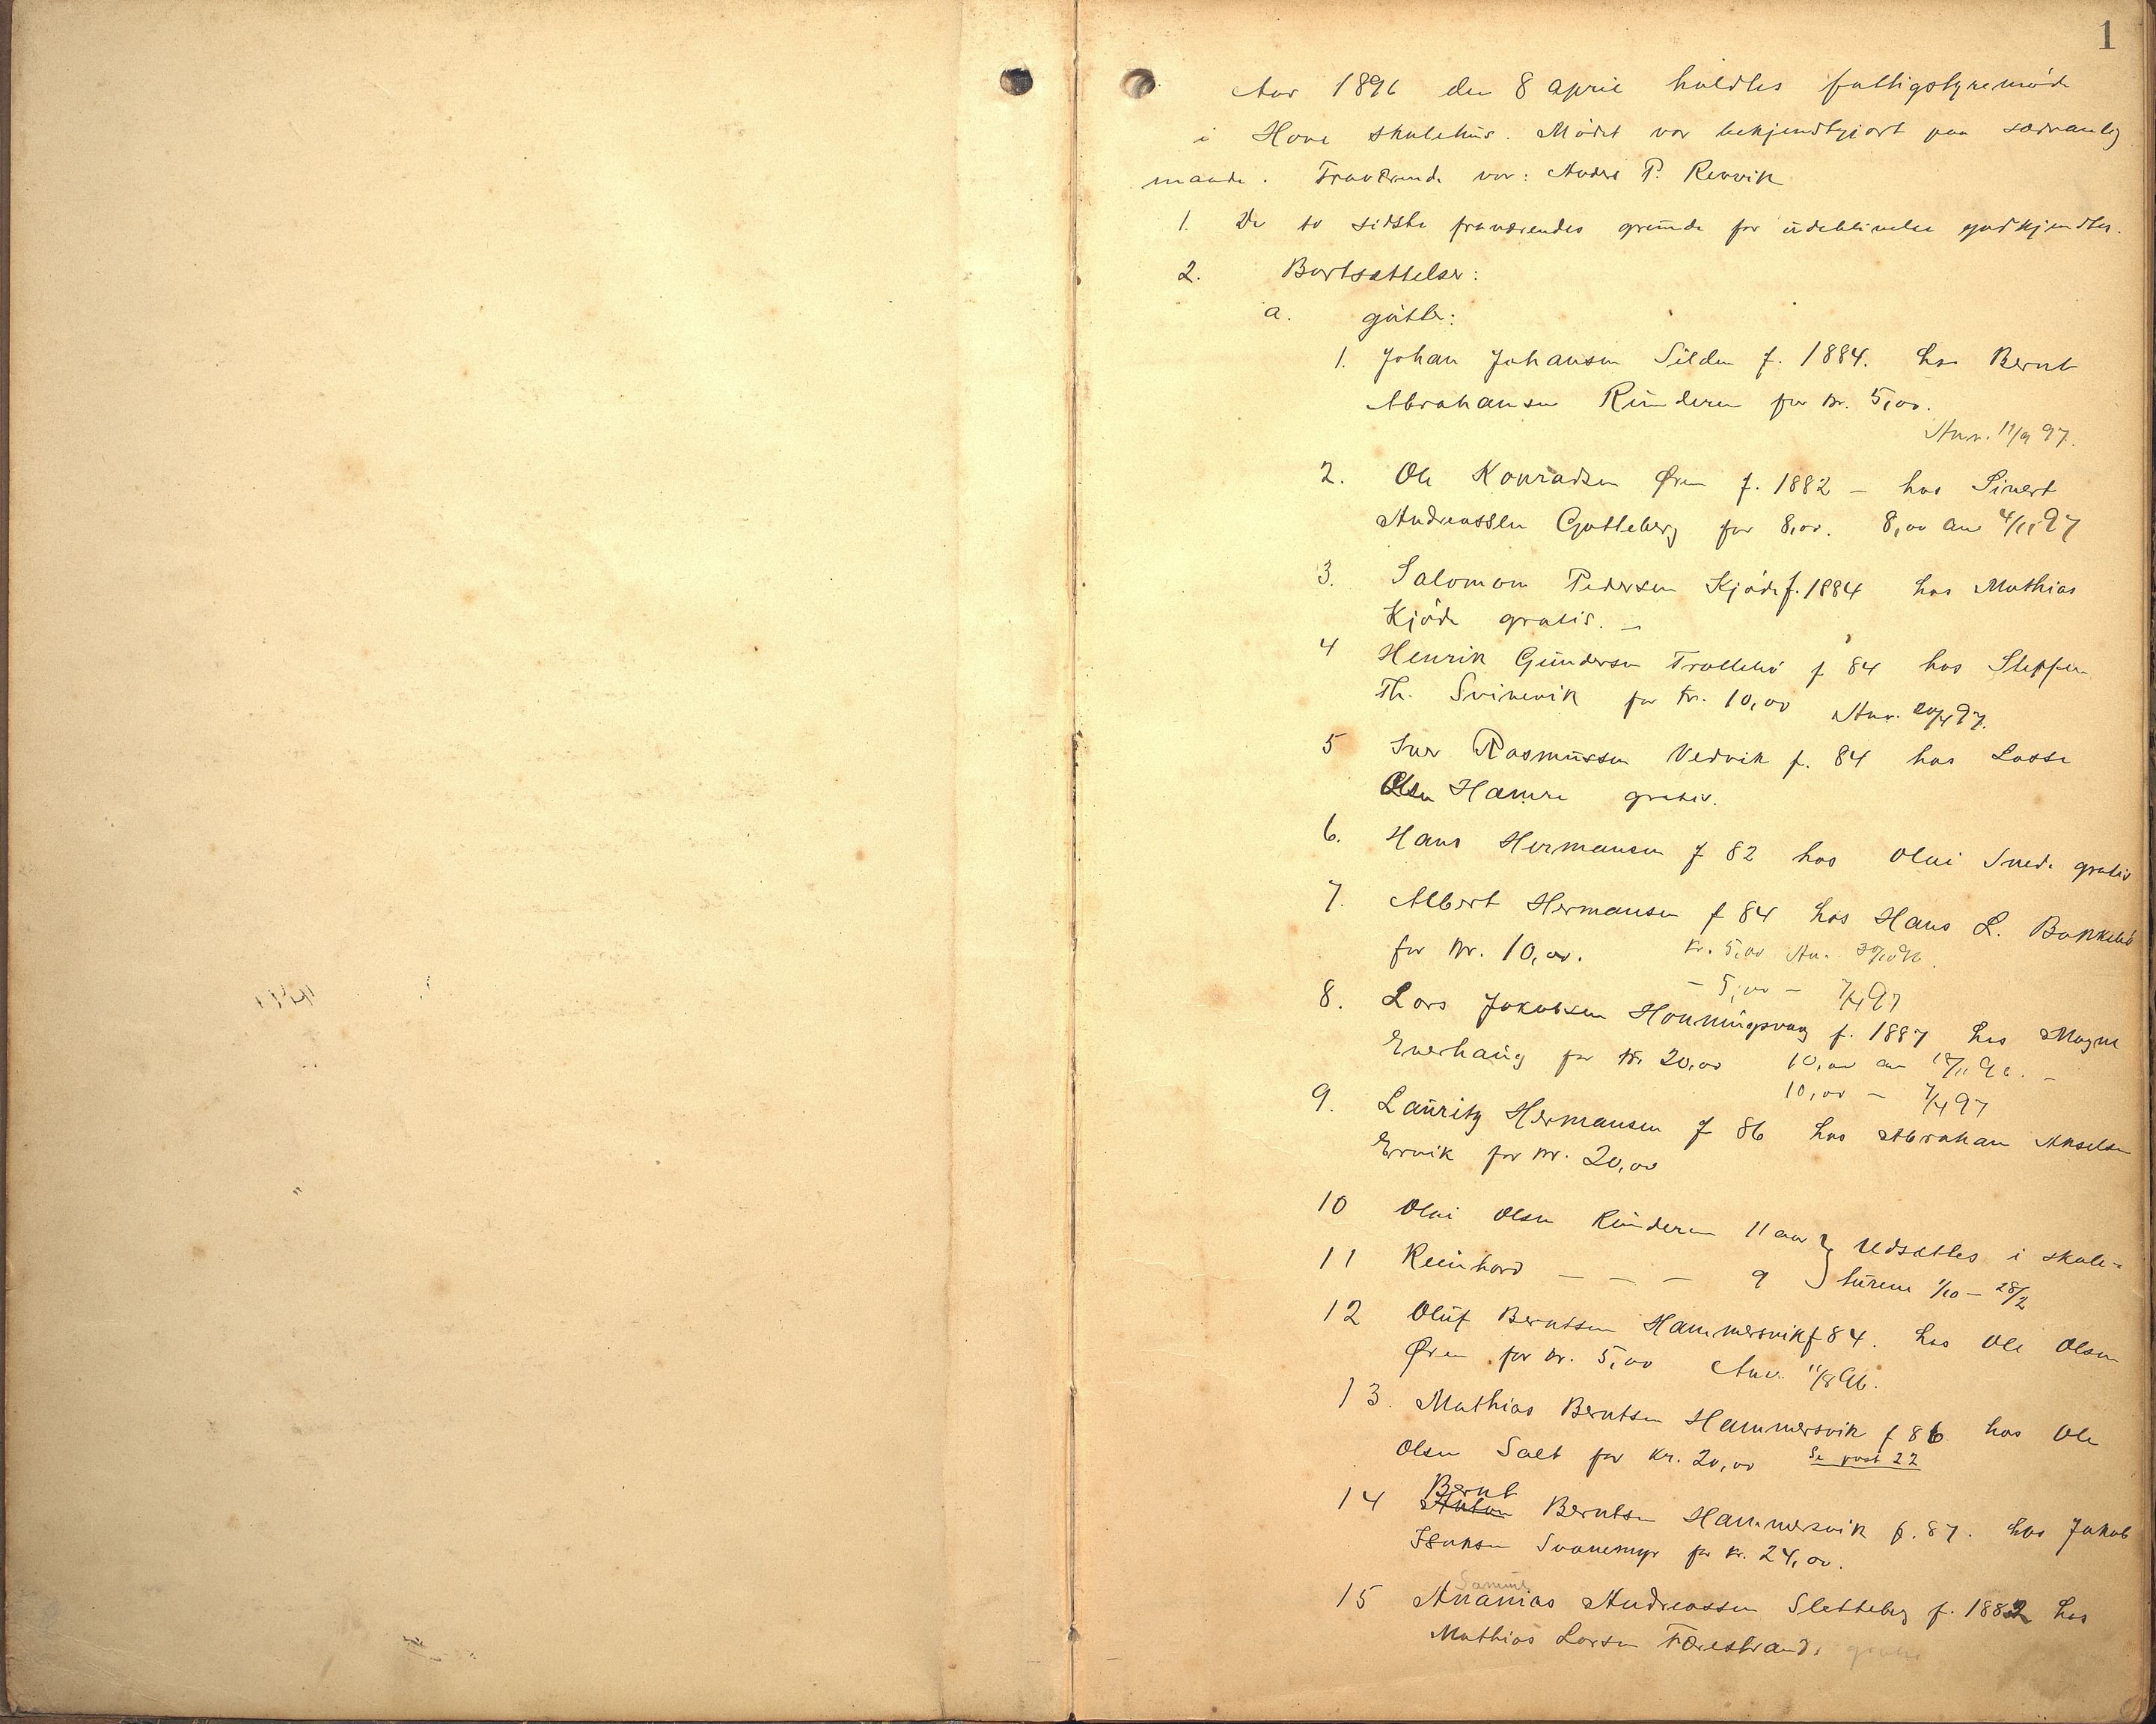 1
Aar 1896 den 8 april holdtes fattigstyremöde
i Hove skulehus. Mödet var bekjendtgjort paa sædvanlig
maade. Fraværende var: Anders P. Revvik
1. De to sidste fraværendes grunde for udeblivelse godkjendtes.
2. Bortsættelser:
a. gutter:
1. Johan Johansen Silden f. 1884. hos Bernt
Abrahansen Runderen for kr. 5,00.
Anv. 11/9 97.
2. Ole Konradsen Øren f. 1882 – hos Sivert
Andreassen Gotteberg for 8,00. 8,00 anv 4/11 97
3. Salomon Pedersen Kjöde f. 1884 hos Mathias
Kjöde gratis. –
4 Henrik Gundersen Trollebö f 84 hos Steffen
Th. Svinevik for kr. 10,00 Anv. 20/4 97.
5 Iver Rasmussen Vedvik f. 84 hos Lasse
Olsen Hamre gratis.
6. Hans Hermansen f 82 hos Olai gratis
7. Albert Hermansen f 84 hos Hans L. Bakkebö
for kr. 10,00. kr. 5,00 An. 30/10 96.
– 5,00 – 7/4 97
8. Lars Jakobsen Honningsvaag f. 1887 hos Magne
Everhaug for kr. 20,00 10,00 an 18/11 96. –
10,00 – 7/4 97
9. Lauritz Hermansen f 86 hos Abraham Akselsen
Ervik for kr. 20,00
10 Olai Olsen Runderen 11 aar } Udsættes i skole-
11 Reinhard – – – 9 } turene 1/10 – 28/2
12 Oluf Berntsen Hammersvik f 84. hos Ole Olsen
Øren for kr. 5,00 Anv. 11/8 96.
13. Mathias Berntsen Hammersvik f 86 hos Ole
Olsen Salt for kr. 20,00 Se post 22
Bernt
14 Anton Berntsen Hammersvik f. 87. hos Jakob
Isaksen Svanemyr for kr. 24,00.
Samuel
15 Ananias Andreassen Slettebø f. 1882 hos
Mathias Larsen Færestrand. gratis